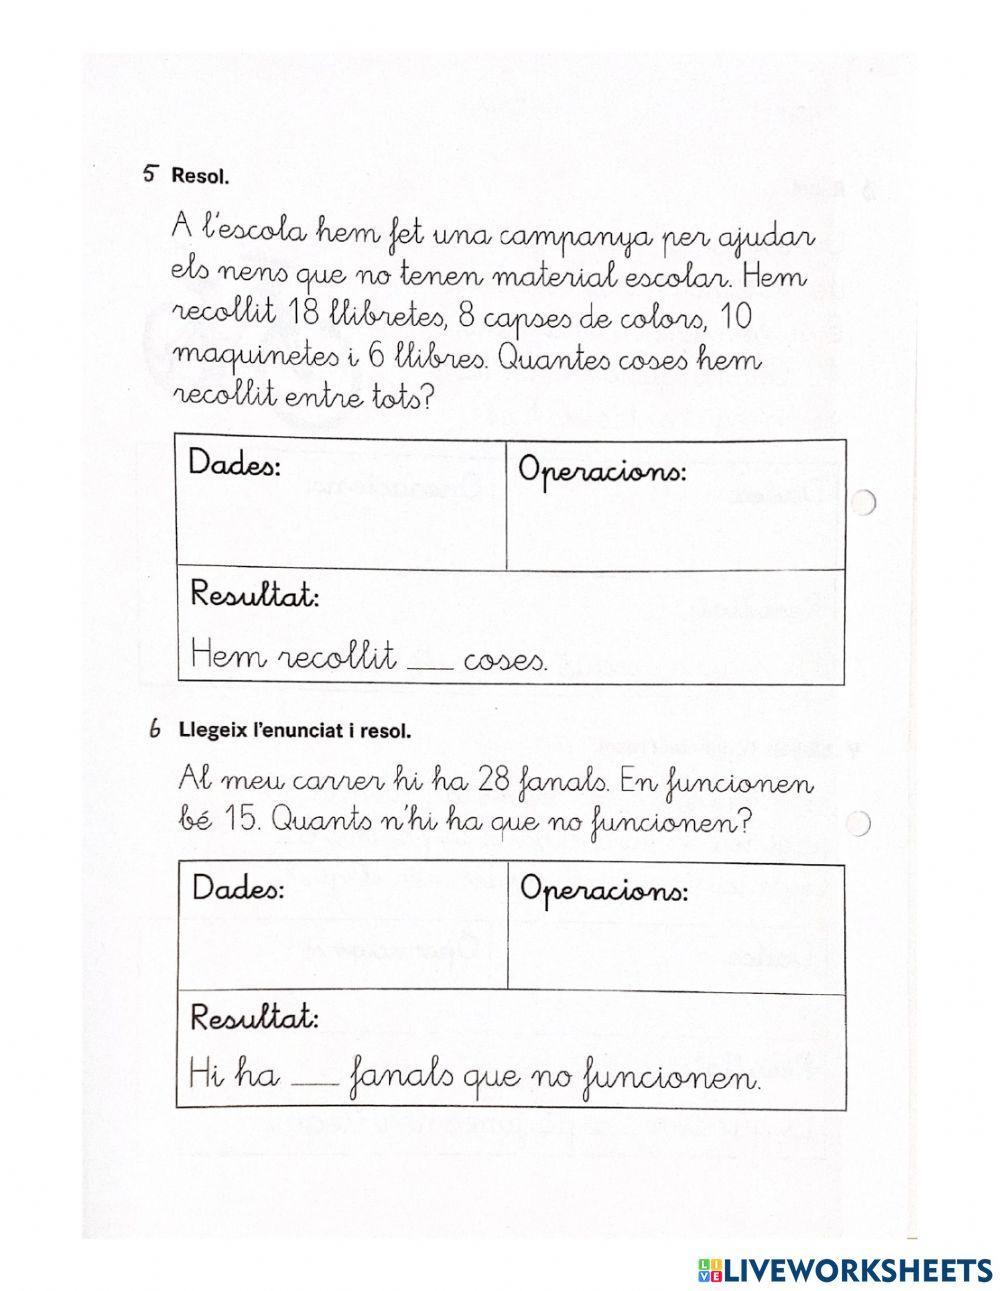 5 Resol.
A l'escola hem fet una campanya per ajudar
els nens que no tenen material escolar. Hem
recollit 18 llibretes, 8 capses de colors, 10
maquinetes i 6 llibres. Quantes coses hem
recollit entre tots?
Dades:
Operacions:
Resultat:
Hem recollit ___ coses.
6 Llegeix l'enunciat i resol.
Al meu carrer hi ha 28 fanals. En funcionen
bé 15. Quants n'hi ha que no funcionen?
Dades:
Operacions:
Resultat:
Hi ha ___ fanals que no funcionen.
LIVE LIVEWORKSHEETS